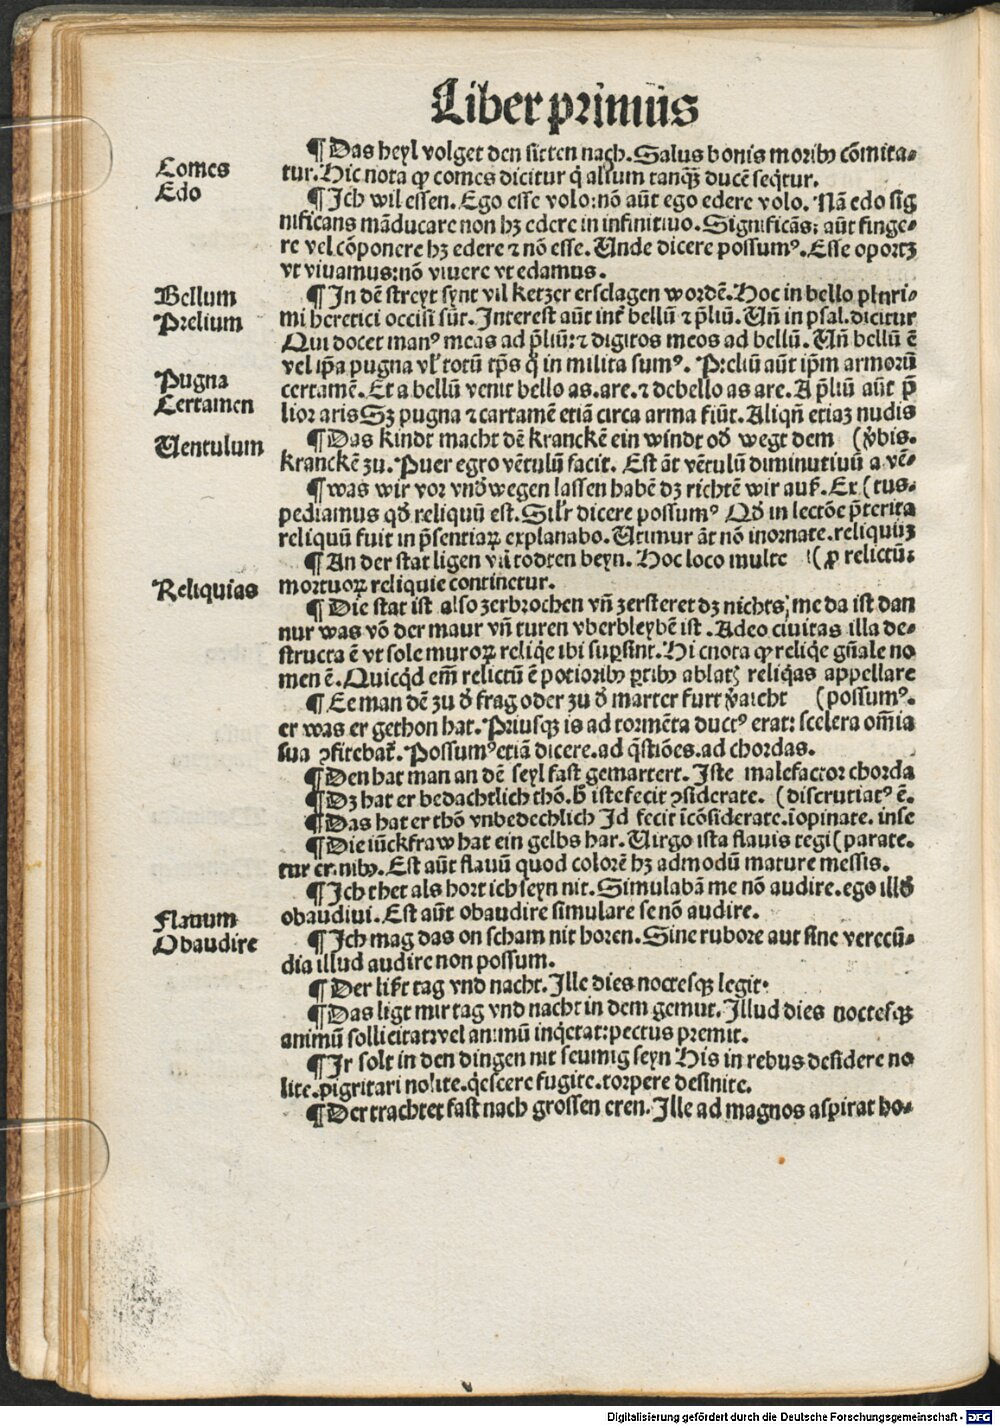 Liber primus
¶ Das heyl volget den sitten nach. Salus bonis moribꝰ cōmita-
Comes
tur. Hic nota ꝙ comes dicitur q̇ alium tanq̄ꝫ ducē seq̇tur.
Edo
¶ Ich wil essen. Ego esse volo: nō aūt ego edere volo. Nā edo sig
nificans māducare non hꝫ edere in infinitiuo. Significās: aūt finge-
re vel cōponere hꝫ edere ⁊ nō esse. Unde dicere possumꝰ. Esse oportꝫ
vt viuamus: nō viuere vt edamus.
Bellum
¶ In dē streyt synt vil ketzer erslagen wordē. Hoc in bello pluri-
Prelium
mi heretici occisi sūt. Interest aūt int̄ bellū ⁊ p̄liū. Uñ in psal. dicitur
Qui docet manꝰ meas ad p̄liū: ⁊ digitos meos ad bellū. Uñ bellū ē
vel ip̄a pugna vl' totū tp̄s q̊ in milita sumꝰ. Preliū aūt ip̄m armorū
Pugna
certamē. Et a bellū venit bello as. are. ⁊ debello as are. A p̄liū aūt p̄
Certamen
lior aris Sꝫ pugna ⁊ cartamē etiā circa arma fiūt. Aliqñ etiaꝫ nudis
Uentulum
¶ Das kindt macht dē kranckē ein windt od̕ wegt dem (v̕bis.
kranckē zu. Puer egro vētulū facit. Est āt vētulū diminutiuū a vē-
¶ was wir vor vnd̕wegen lassen habē dꝫ richtē wir auß. Ex (tus.
pediamus qd̕ reliquū est. Silr̄ dicere possumꝰ Qd̕ in lectōe p̄terita
reliquū fuit in p̄sentiaꝝ explanabo. Utimur āt nō inornate. reliquūꝫ
¶ An der stat ligen vil todten beyn. Hoc loco multe (ꝓ relictū:
Reliquias
mortuoꝝ reliquie continetur.
¶ Die stat ist also zerbrochen vñ zersteret dꝫ nichts me da ist dan
nur was vō der maur vñ turen vberbleybē ist. Adeo ciuitas illa de-
structa ē vt sole muroꝝ reliq̇e ibi suꝑsint. Hic nota ꝙ reliq̇e gñale no
men ē. Quicq̇d em̄ relictū ē potioribꝰ ꝑtibꝰ ablatꝭ reliq̇as appellare
¶ Ee man dē zu d̕ frag oder zu d̕ marter furt v̕aicht (possumꝰ.
er was er gethon hat. Priusqꝫ is ad tormēta ductꝰ erat: scelera om̄ia
sua ꝯfitebat̄. Possumꝰ etiā dicere. ad q̄stiōes. ad chordas.
¶ Den hat man an dē seyl fast gemartert. Iste malefactor chorda
¶ Dꝫ hat er bedachtlich thō. Hꝫ iste fecit ꝯsiderate. (discrutiatꝰ ē.
¶ Das hat er thō vnbedechlich Id fecit īcōsiderate. īopinate. inse
¶ Die iūckfraw hat ein gelbs har. Uirgo ista flauis tegi (parate.
tur crinibꝰ. Est aūt flauū quod colorē hꝫ admodū mature messis.
¶ Ich thet als hort ich seyn nit. Simulabā me nō audire. ego illd̕
Flauum
obaudiui. Est aūt obaudire simulare se nō audire.
Obaudire
¶ Ich mag das on scham nit horen. Sine rubore aut sine verecū-
dia illud audire non possum.
¶ Der lißt tag vnd nacht. Ille dies noctesqꝫ legit.
¶ Das ligt mir tag vnd nacht in dem gemut. Illud dies noctesqꝫ
animū sollicitat: vel animū inq̇etat: pectus premit.
¶ Ir solt in den dingen nit seumig seyn His in rebus desidere no
lite. pigritari nolite. q̇escere fugite. torpere desinite.
¶ Der trachtet fast nach grossen eren. Ille ad magnos aspirat ho-
Digitalisierung gefördert durch die Deutsche Forschungsgemeinschaft - DFG